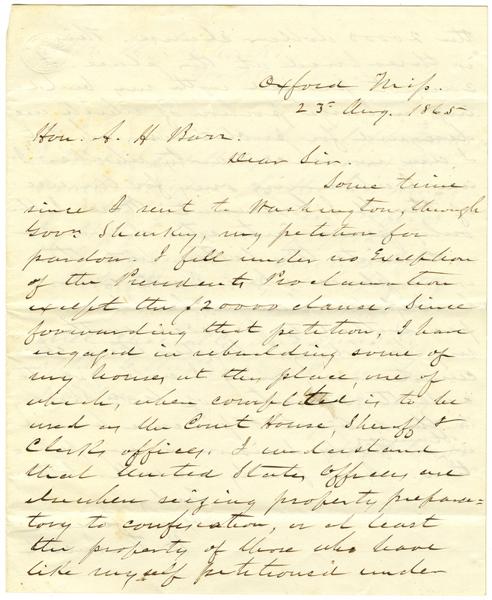 Oxford Miss.
23d Aug. 1865
Hon. A. H. Barr.
Dear Sir.
Some time
since I sent to Washington, through
Govr. Sharkey, my petition for
pardon. I fell under no Exception
of the Presidents Proclamation
except the $20000 clause. Since
forwarding that petition, I have
engaged in rebuilding some of
my houses at this place, one of
which, when completed is to be
used as the Court House, Sheriff &
Clerks offices. I understand
that United States Officers are
elsewhere seizing property prepara-
tory to confiscation, or at least
the property of those who have
like myself petitioned under